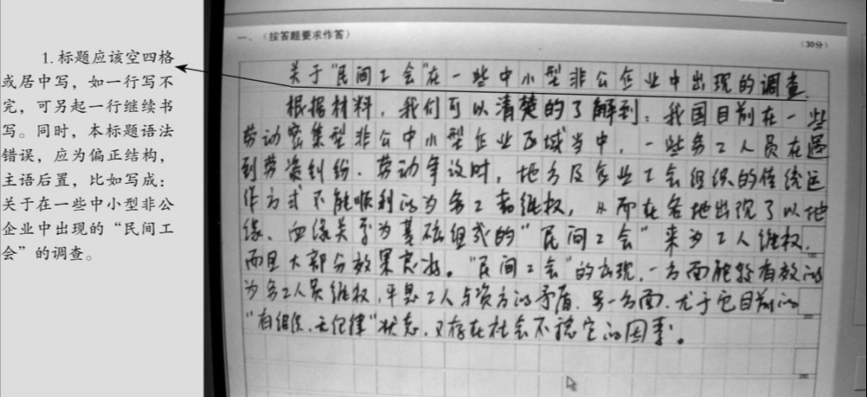 1.标题应该空四格
或居中写，如一行写不
完，可另起一行继续书
写。同时，本标题语法
错误，应为偏正结构，
主语后置，比如写成：
关于在一些中小型非公
企业中出现的“民间工
会”的调查。
一、（按答题要求作答）
（30分）
关于“民间工会”在一些中小型非公企业中出现的调查.
根据材料，我们可以清楚的了解到：我国目前在一些
劳动密集型非公中小型企业区域当中，一些务工人员在遇
到劳资纠纷、劳动争议时，地方及企业工会组织的传统运
作方式不能顺利的为务工者维权，从而在各地出现了以地
缘、血缘关系为基础组成的“民间工会”来为工人维权，
而且大部分效果良好。“民间工会”的出现，一方面能够有效的
为务工人员维权，平息工人与资方的矛盾，另一方面，尤于它目前的
“有组织、无纪律”状态，又存在社会不稳定的因素。